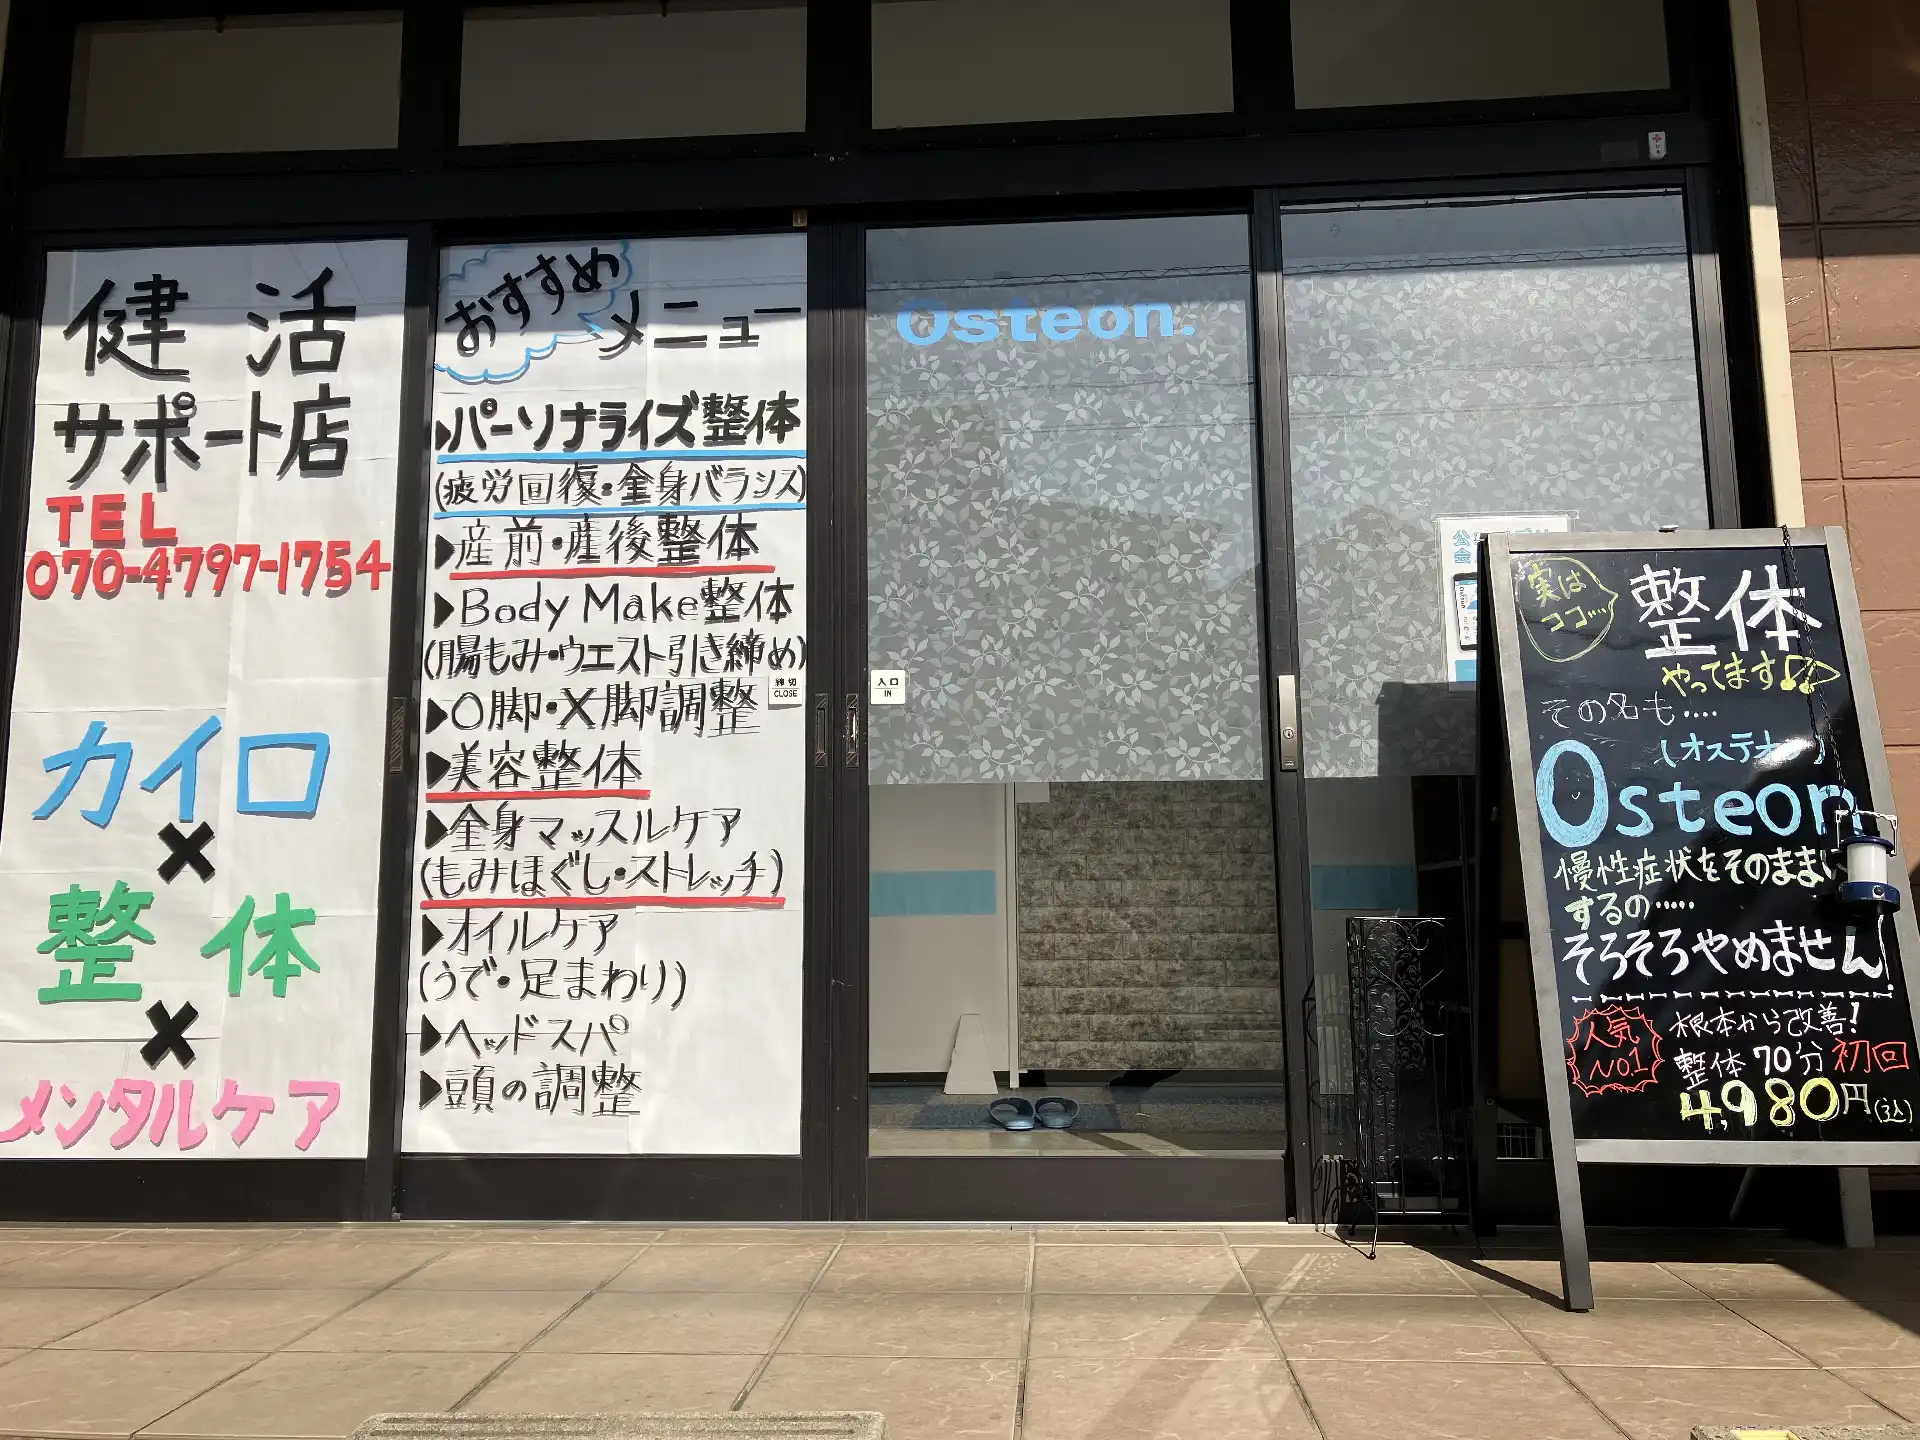 健活
サポート店
TEL
070-4797-1754
カイロ
×
整体
×
メンタルケア
おすすめ
メニュー
▶パーソナライズ整体
(疲労回復・全身バランス)
▶産前・産後整体
▶Body Make整体
(腸もみ・ウエスト引き締め)
▶O脚・X脚調整
▶美容整体
▶全身マッスルケア
(もみほぐし・ストレッチ)
▶オイルケア
(うで・足まわり)
▶ヘッドスパ
▶頭の調整
締切
CLOSE
入口
IN
Osteon.
公
会
実は
ココ…
整体
やってます♪
その名も….
(オステオ
Osteon
慢性症状をそのままに
するの…..
そろそろやめません!
人気
No.1
根本から改善!
整体 70分 初回
4,980円(込)